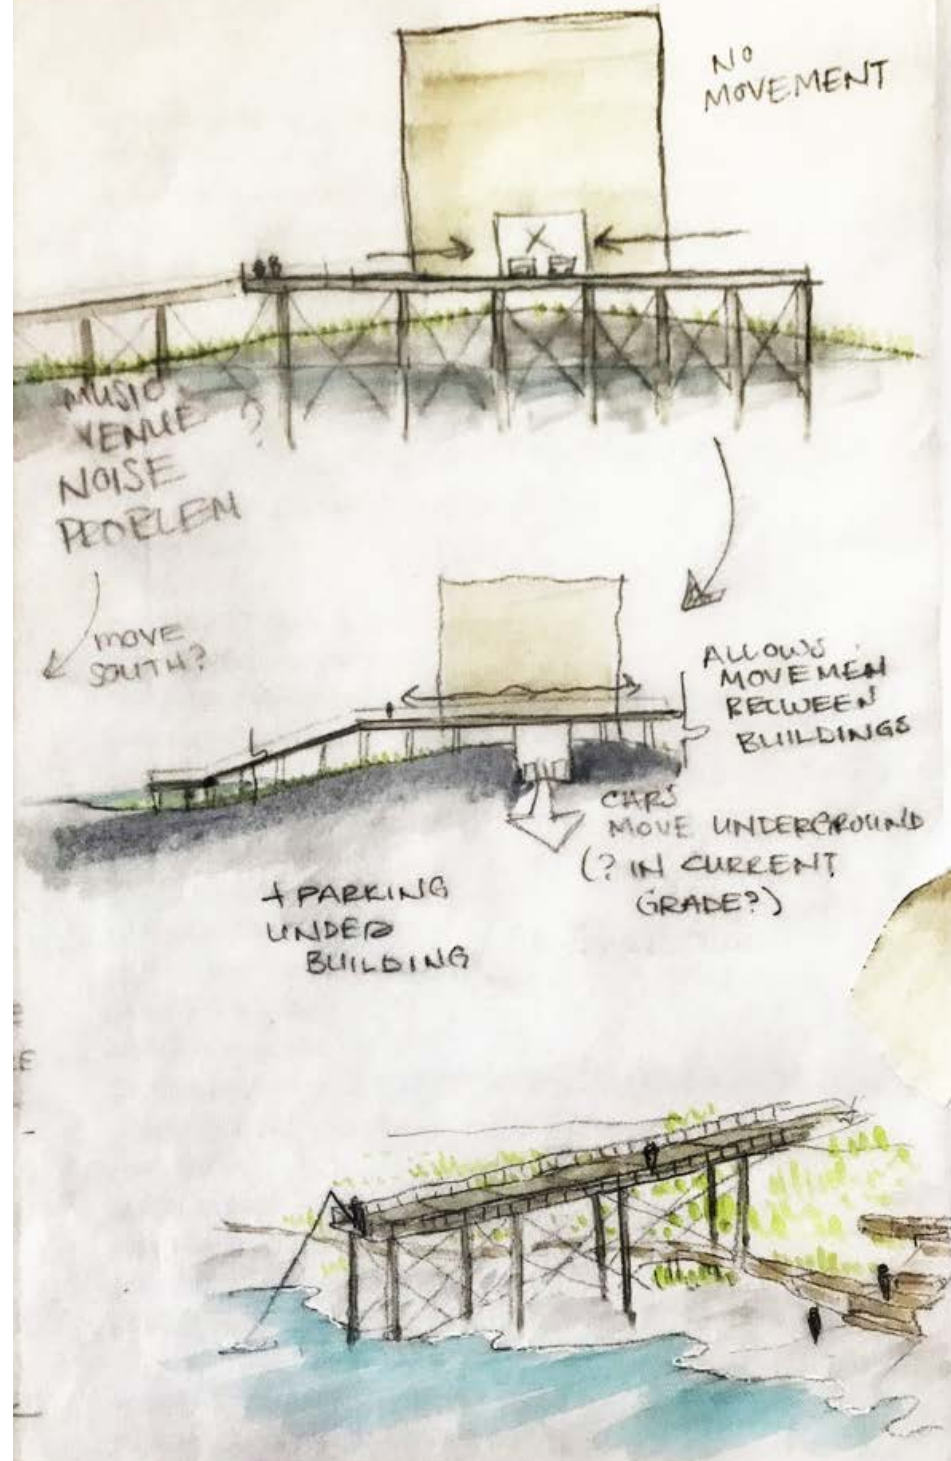 NO
MOVEMENT
X
MUSIC
VENUE ?
NOISE
PROBLEM
MOVE
SOUTH?
ALLOWS
MOVEMEN
BETWEEN
BUILDINGS
CARS
MOVE UNDERGROUND
(? IN CURRENT
GRADE?)
+ PARKING
UNDER
BUILDING
E